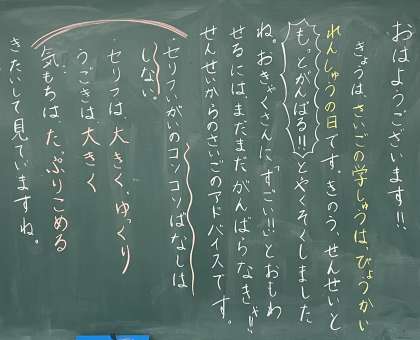 おはようございます!!
きょうは、さいごの学しゅうは、びょうかい
れんしゅうの日です。きのう、せんせいと
もっとがんばる!!とやくそくしました
ね。おきゃくさんにすごい!!とおもわ
せるにはまだまだがんばらなき!!
せんせいからのさいごのアドバイスです。
セリフいがいのコソコソばなしは
しない。
セリフは、大きく、ゆっくり
うごきは、大きく
気もちは、たっぷりこめる
きたいして見ていますね。